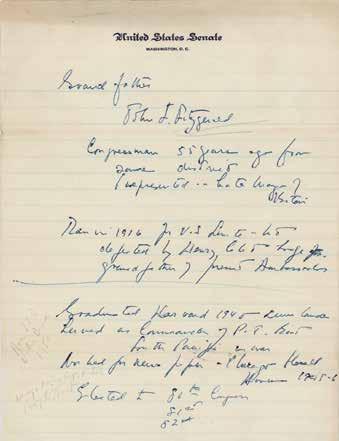 United States Senate
WASHINGTON, D. C.
Grandfather
John F. Fitzgerald
Congressman 55 years ago from
same district
I represented -- late Mayor of
Boston
Ran in 1916 for U.S. Senate -
defeated by Henry Cabot Lodge
grandfather of present Ambassador
Graduated Harvard 1940
Served as Commander of P.T. Boat
South Pacific in war
Worked for news paper - Chicago Herald
American 1945-6
Elected to 80th Congress
81st
82nd